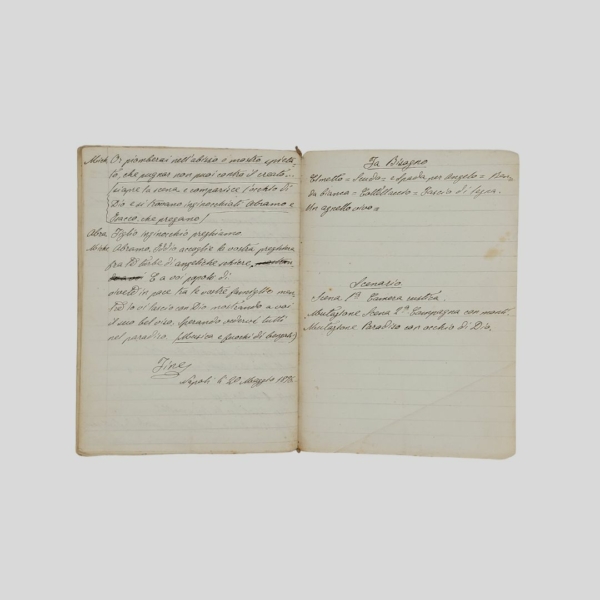 Mich. Or piomberai nell'abisso o mostro spieta-
to, che pugnar non puoi contro il creato.
s'apre la scena e comparisce l'occhio di
Dio e si trovano inginocchiati Abramo e
Isacco, che pregano)
Abra. Figlio inginocchio preghiamo.
Mich. Abramo, Iddio accoglie la vostra preghiera
fra le turbe di angeliche schiere,
E a voi popoli di
in pace tra le vostre famiglie
Dio mostrando a voi
il suo bel viso, sperando vederci tutti
nel paradiso. (Musica e fuochi di bengala)
Fine
Napoli 20 Maggio
Fa Bisogno
Elmetto = Scudo = e spada per Angelo =
da bianca = Coltellaccio = Fascio di legna.
Un agnello vivo =
Scenario
Scena 1ª Camera rustica.
Mutazione Scena 2ª Campagna con monti.
Mutazione Paradiso con occhio di Dio.